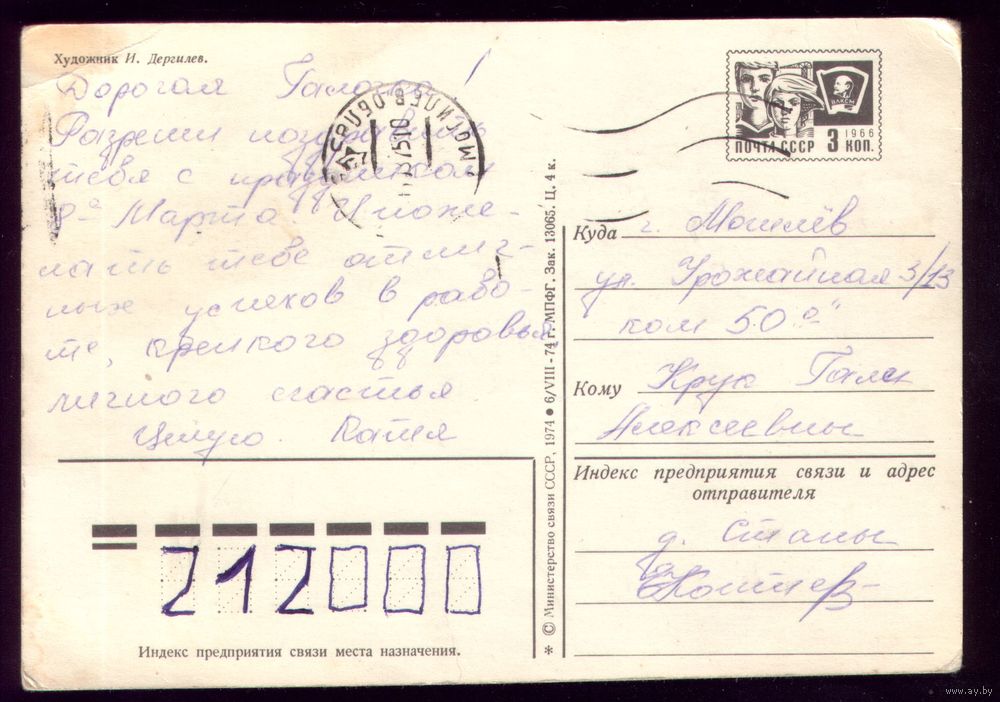 Художник И. Дергилев.
Дорогая Галочка!
Разреши поздравить
тебя с праздником
8е Марта. И поже-
лать тебе отлич-
ных успехов в рабо-
те, крепкого здоровья,
личного счастья
Целую. Катя
ВЛКСМ
1966
ПОЧТА СССР 3 КОП.
Куда г. Могилёв
ул. Урожайная 3/13
ком 50 "а"
Кому Круг Гале
Алексеевны
Индекс предприятия связи и адрес
отправителя
д. Стайы
212000
Индекс предприятия связи места назначения.
* © Министерство связи СССР, 1974 ● 6/VIII - 74 г. МПФГ. Зак. 13065. Ц. 4 к.
www.ay.by